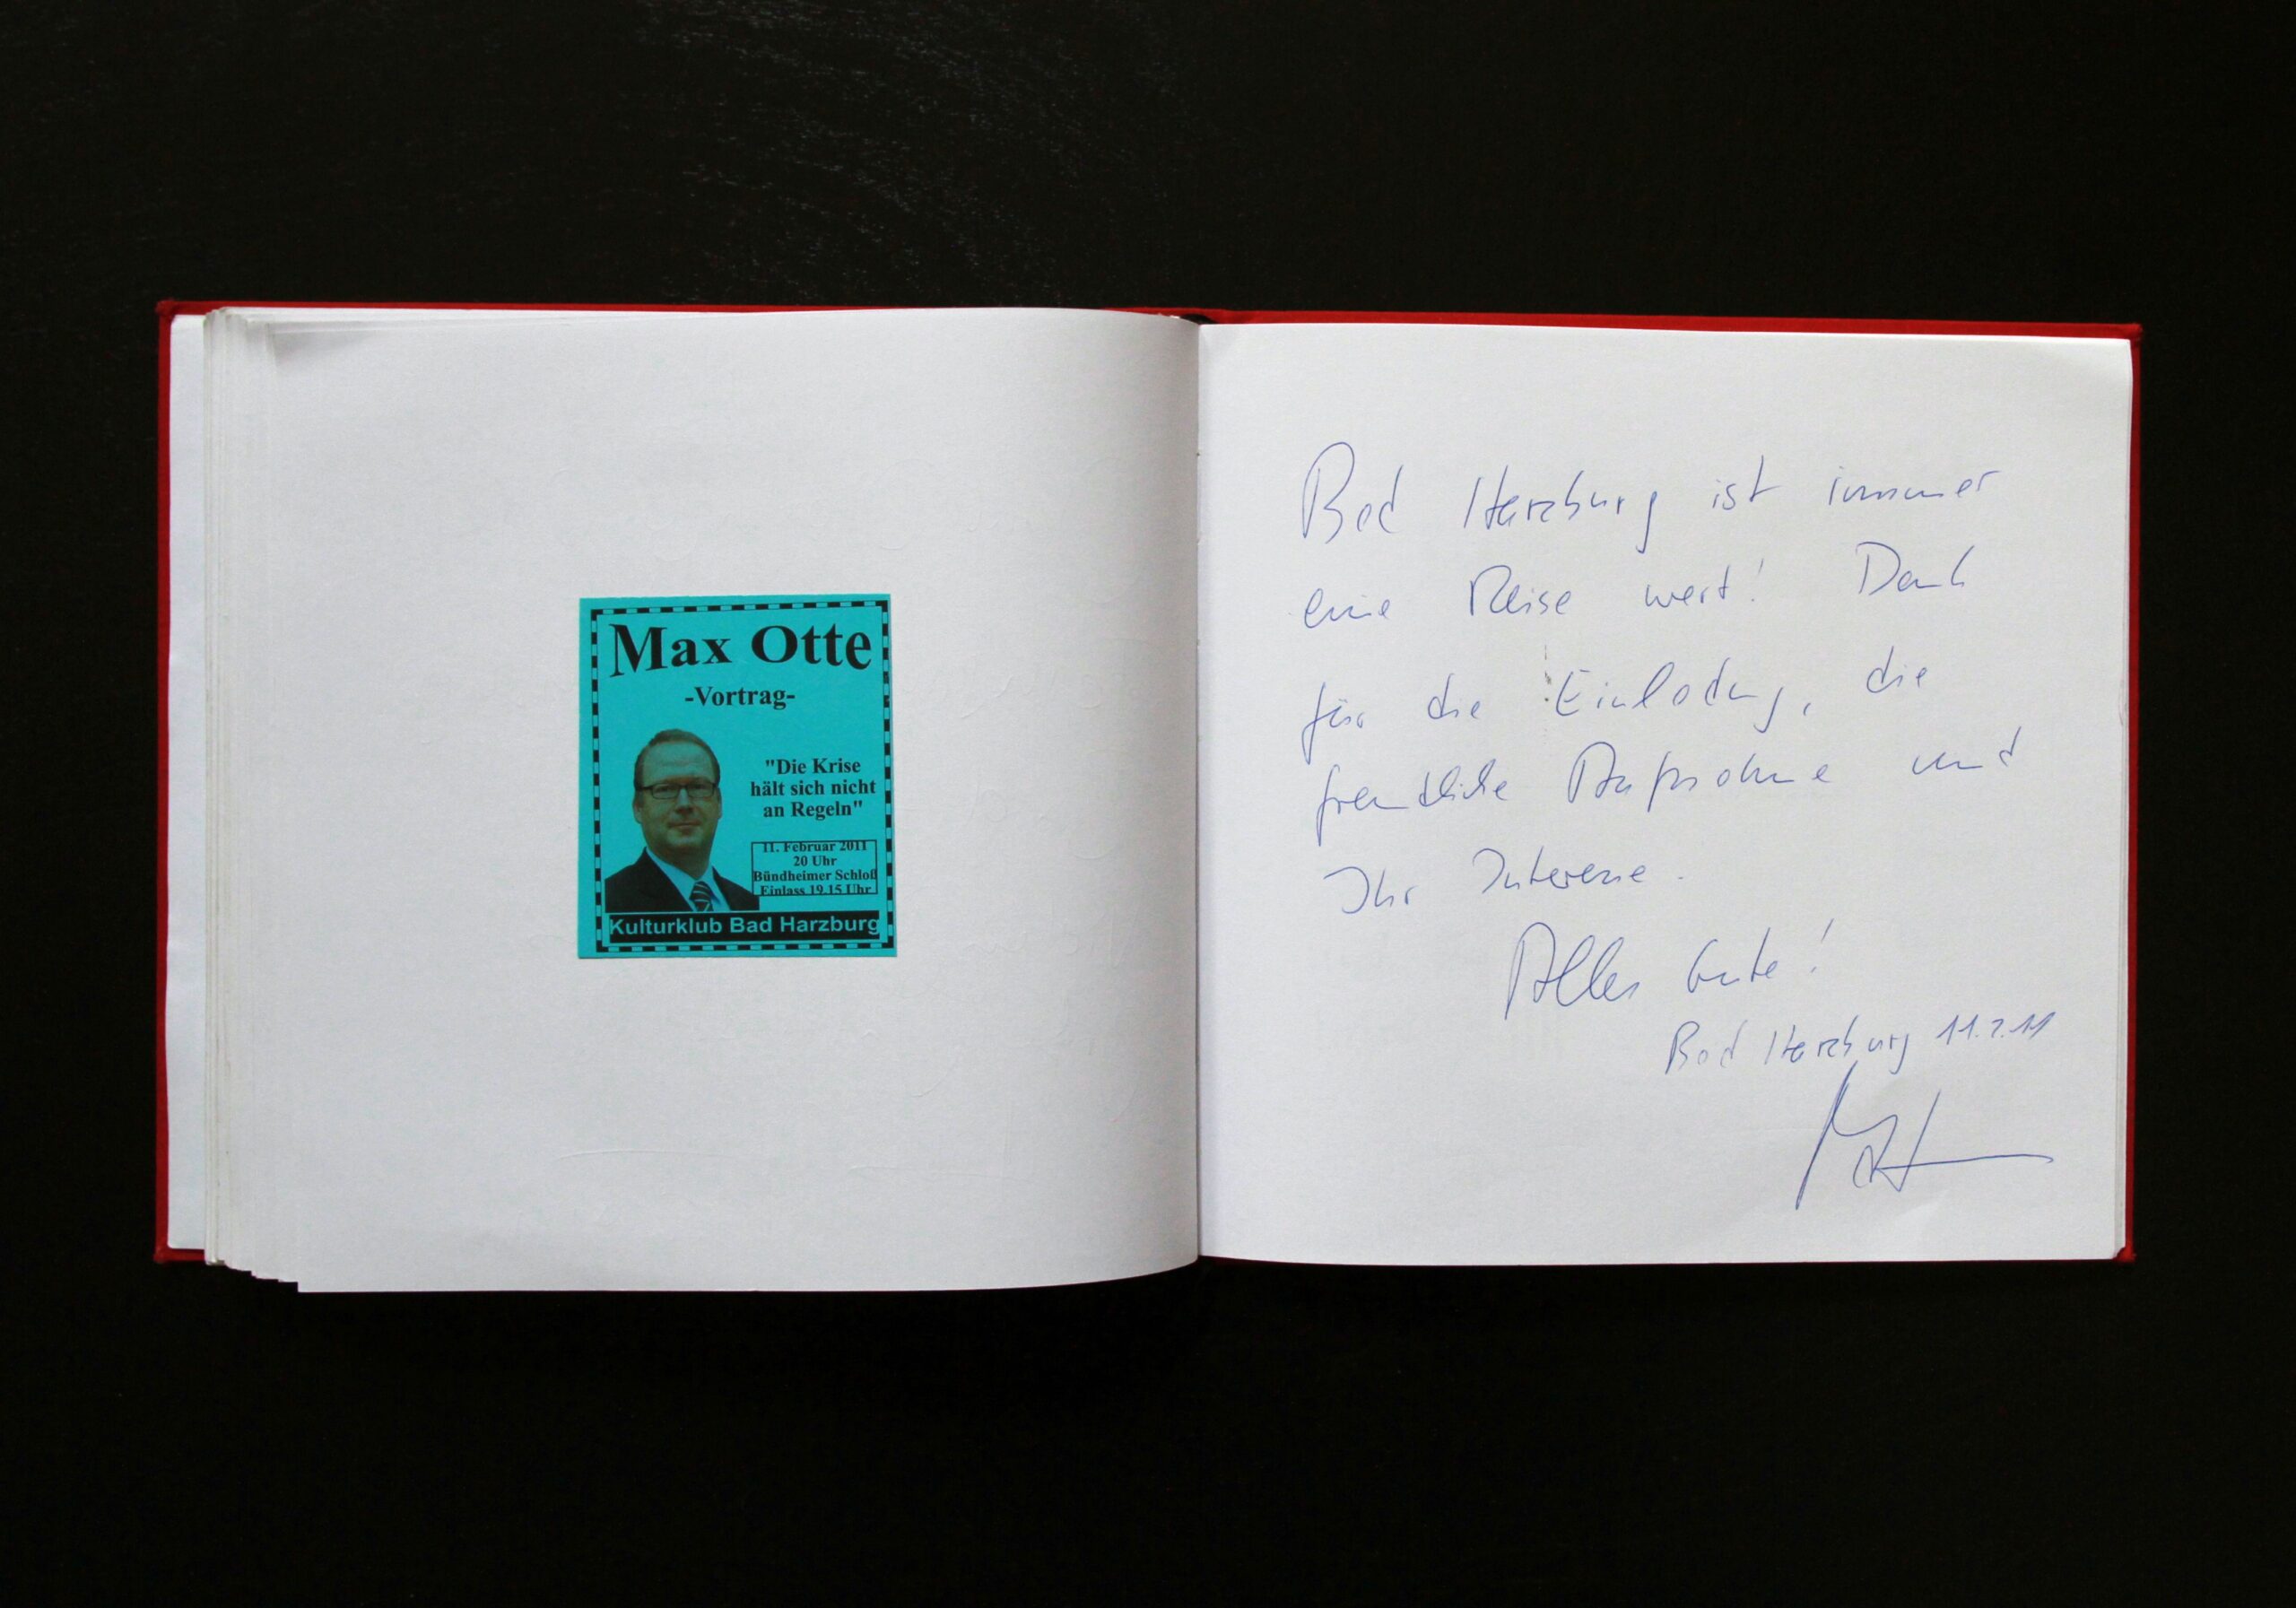 Max Otte
-Vortrag-
"Die Krise
hält sich nicht
an Regeln"
11. Februar 2011
20 Uhr
Bündheimer Schloß
Einlass 19.15 Uhr
Kulturklub Bad Harzburg
Bad Harzburg ist immer
eine Reise wert! Dank
für die Einladung, die
freundliche Aufnahme und
Ihr Interesse.
Alles Gute!
Bad Harzburg 11.2.11